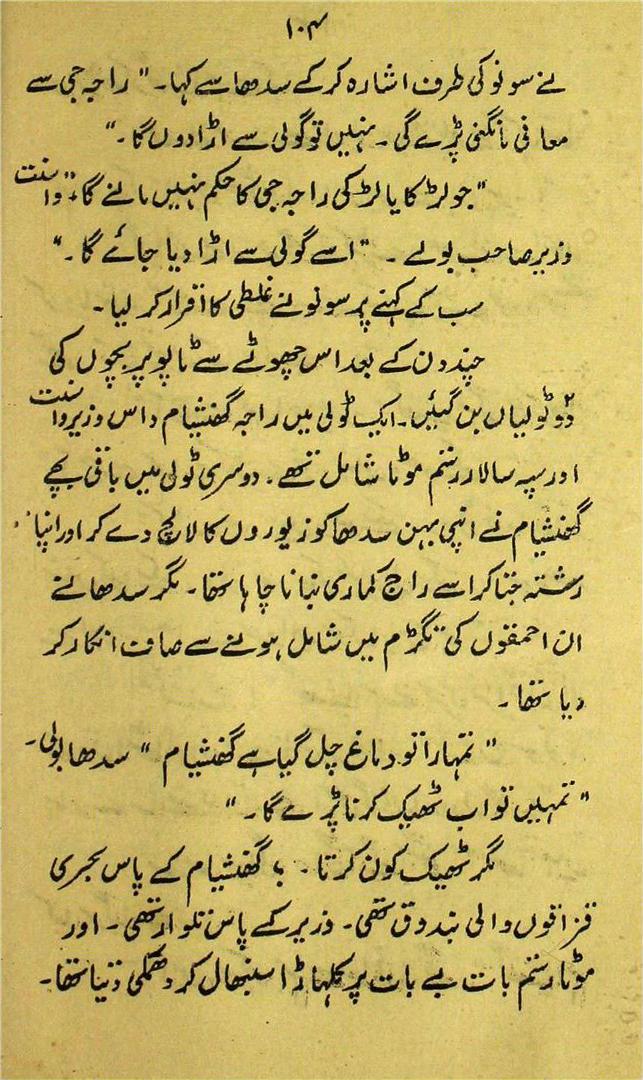 ۱۰۴
نے سونو کی طرف اشارہ کر کے سدھا سے کہا۔ " راجہ جی سے
معافی مانگنی پڑے گی۔ نہیں تو گولی سے اڑا دوں گا۔"
"جو لڑکا یا لڑکی راجہ جی کا حکم نہیں مانے گا،" وسنت
وزیر صاحب بولے ۔ "اسے گولی سے اڑا دیا جائے گا۔"
سب کے کہنے پر سونو نے غلطی کا اقرار کر لیا۔
چند دن کے بعد اس چھوٹے سے ٹاپو پر بچوں کی
دو ٹولیاں بن گئیں۔ ایک ٹولی میں راجہ گھنشیام داس وزیر وسنت
اور سپہ سالار رستم موٹا شامل تھے۔ دوسری ٹولی میں باقی بچے
گھنشیام نے اپنی بہن سدھا کو زیوروں کا لالچ دے کر اور اپنا
رشتہ جتا کر اسے راج کماری بنانا چاہا تھا۔ مگر سدھا نے
ان احمقوں کی تگڑم میں شامل ہونے سے صاف انکار کر
دیا تھا۔
" تمہارا تو دماغ چل گیا ہے گھنشیام " سدھا بولی۔
" تمہیں تو اب ٹھیک کرنا پڑے گا۔ "
مگر ٹھیک کون کرتا۔ ؟ گھنشیام کے پاس بحری
قزاقوں والی بندوق تھی۔ وزیر کے پاس تلوار تھی۔ اور
موٹا رستم بات بے بات پر کلہاڑا سنبھال کر دھمکی دیتا تھا۔